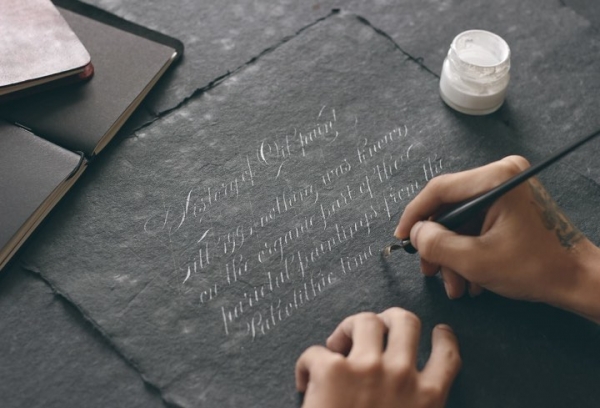 History of Oil paint
Till nothing was known
on the organic part of the
parietal paintings from the
Paleolithic time